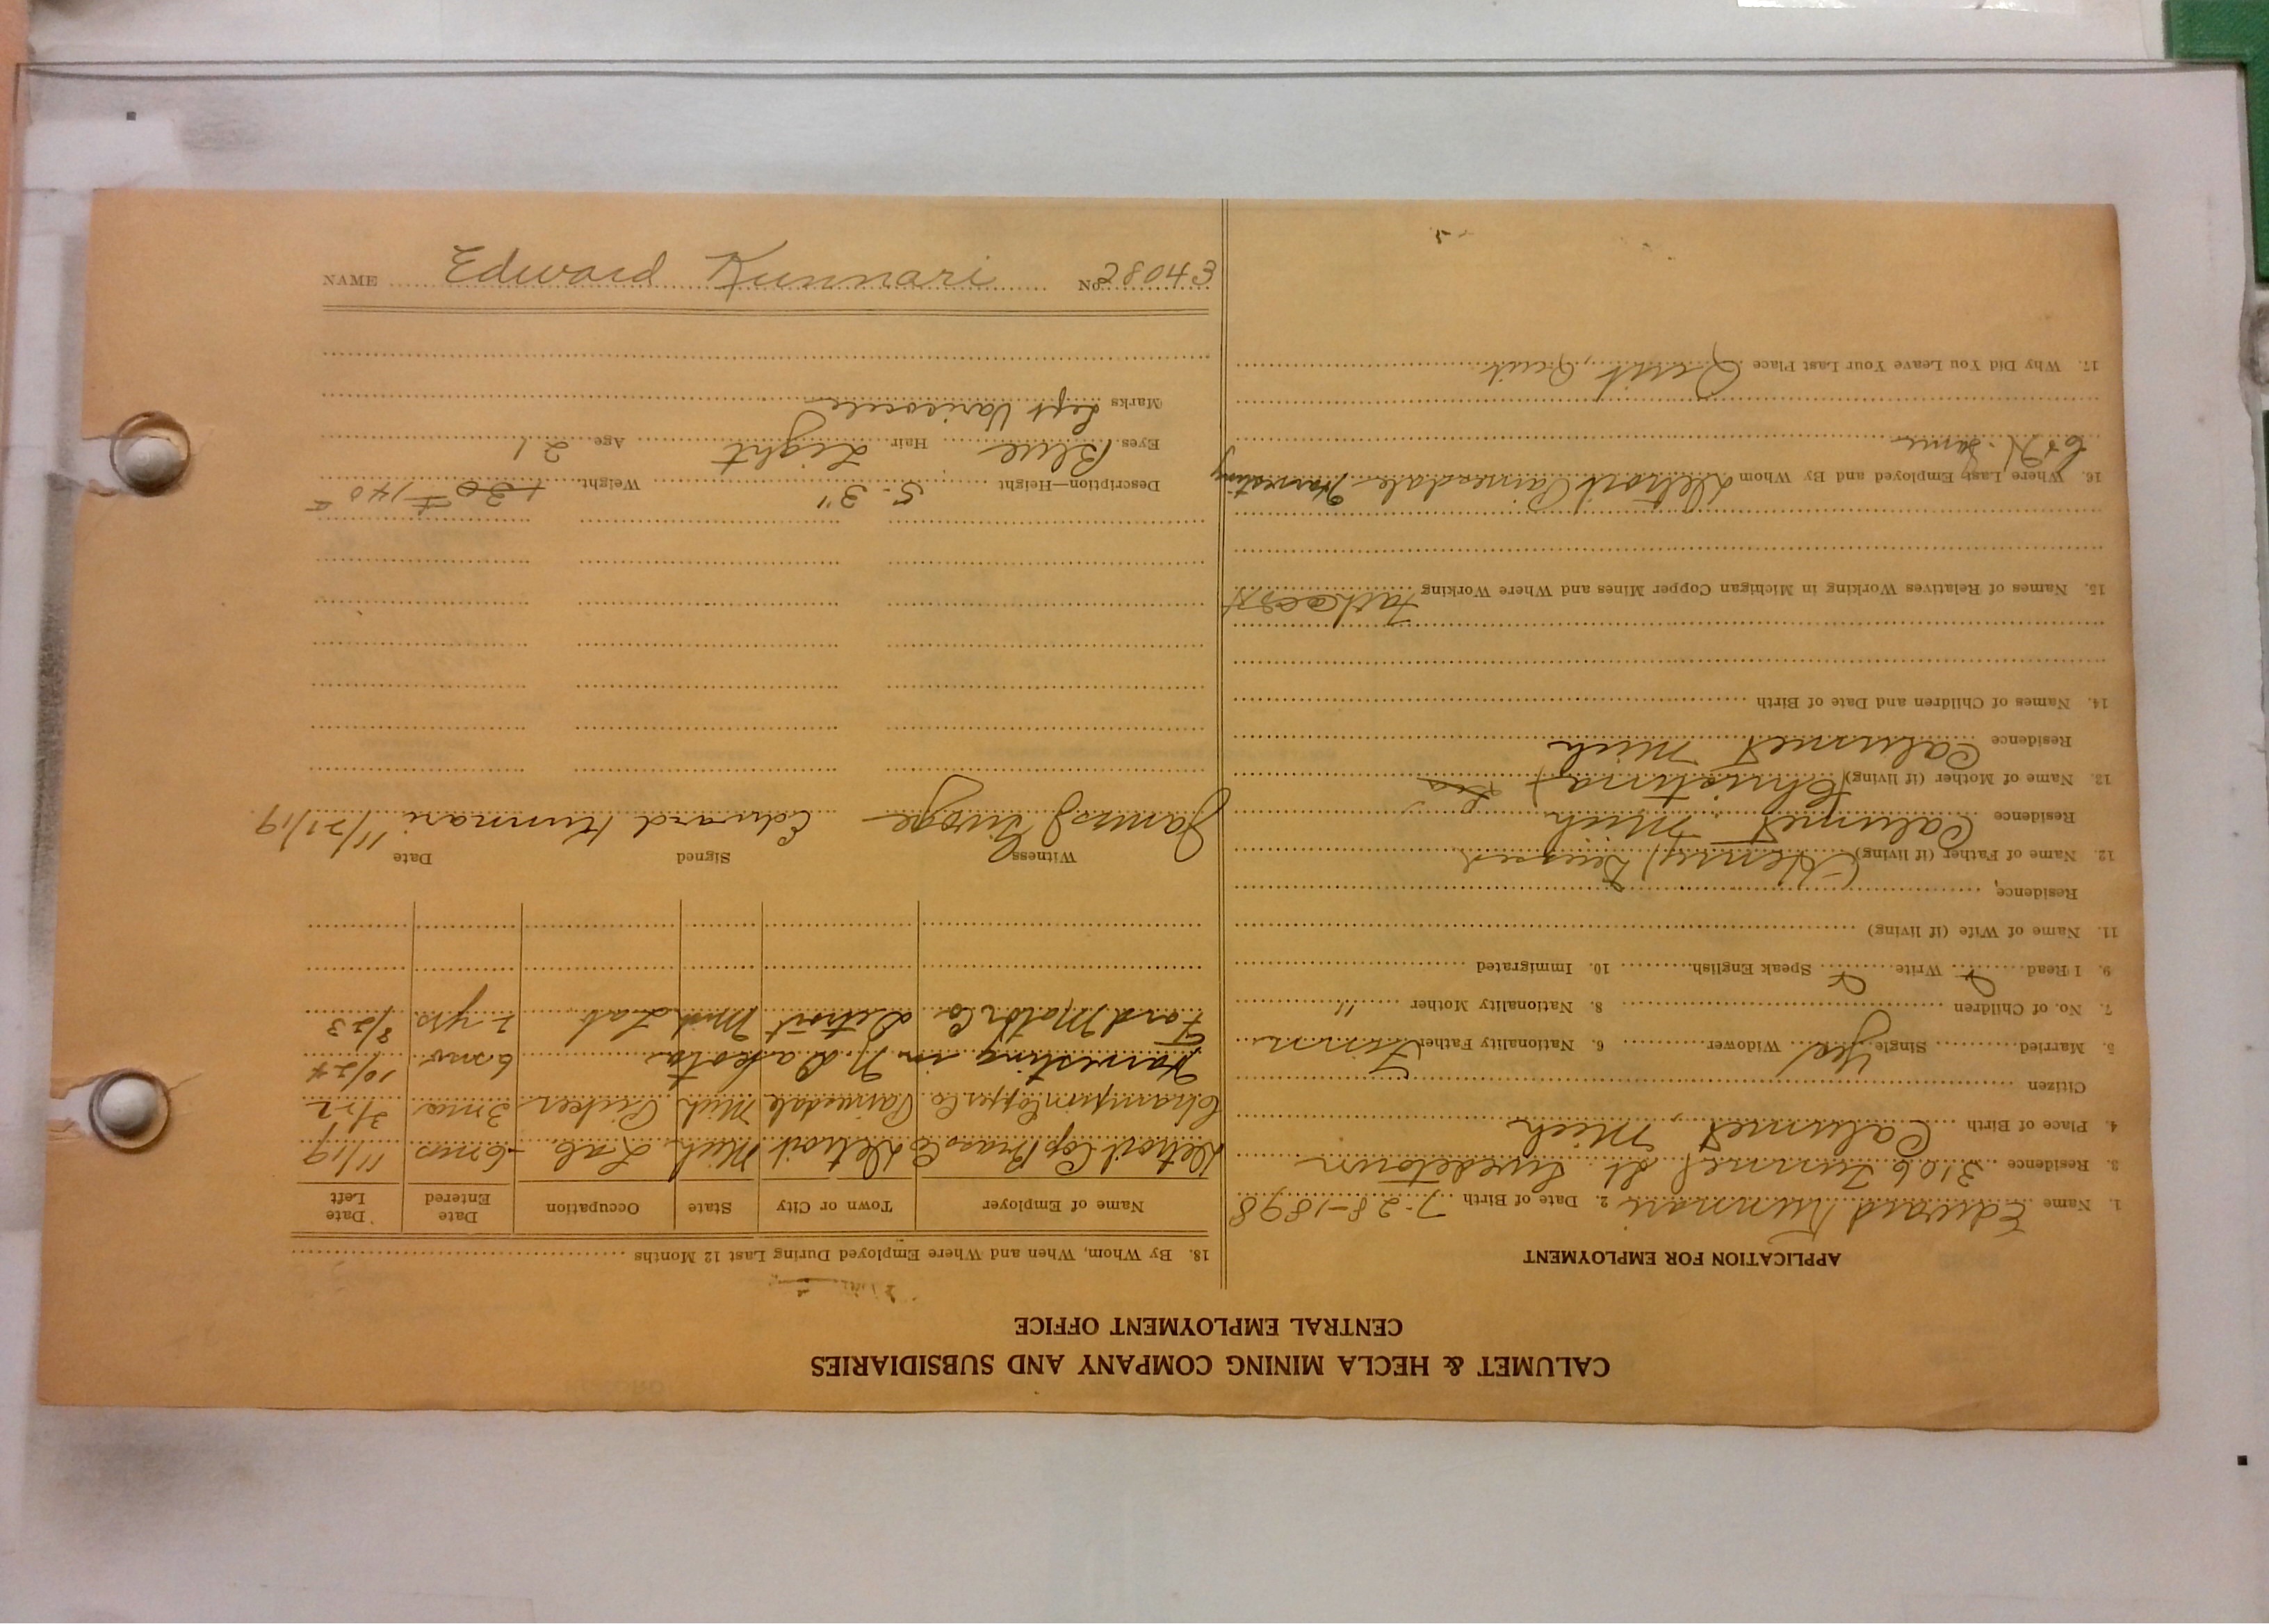 CALUMET & HECLA MINING COMPANY AND SUBSIDIARIES
CENTRAL EMPLOYMENT OFFICE
APPLICATION FOR EMPLOYMENT
1. Name Edward Kunnari 2. Date of Birth 7-28-1898
3. Residence 3106 Tunnel St Swedetown
4. Place of Birth Calumet, Mich
Citizen
5. Married Single Yes Widower 6. Nationality Father Finn
7. No. of Children 8. Nationality Mother "
9. I Read Write Speak English 10. Immigrated
11. Name of Wife (if living)
Residence,
12. Name of Father (if living) (Henry) Deceased
Residence Calumet, Mich
13. Name of Mother (if living) (Christina)
Residence Calumet Mich
14. Names of Children and Date of Birth
15. Names of Relatives Working in Michigan Copper Mines and Where Working
16. Where Last Employed and By Whom Detroit Painesdale Harvesting
17. Why Did You Leave Your Last Place Quit, Quit
18. By Whom, When and Where Employed During Last 12 Months
Name of Employer Town or City State Occupation Date Entered Date Left
Detroit Cop Brass Co Detroit Mich Lab. 6 mos 11/19
Champion Copper Co. Painesdale Mich Picker 3 mos 3/22
Harvesting in N. Dakota 6 mo 10/24
Ford Motor Co. Detroit Mich Lab 2 yrs 8/23
Witness Signed Date
James J Edward Kunnari 11/21/19.
Description—Height 5-3" Weight 130 ± 140
Eyes Blue Hair Light Age 21
Marks Left Varicocele
NAME Edward Kunnari No. 28043